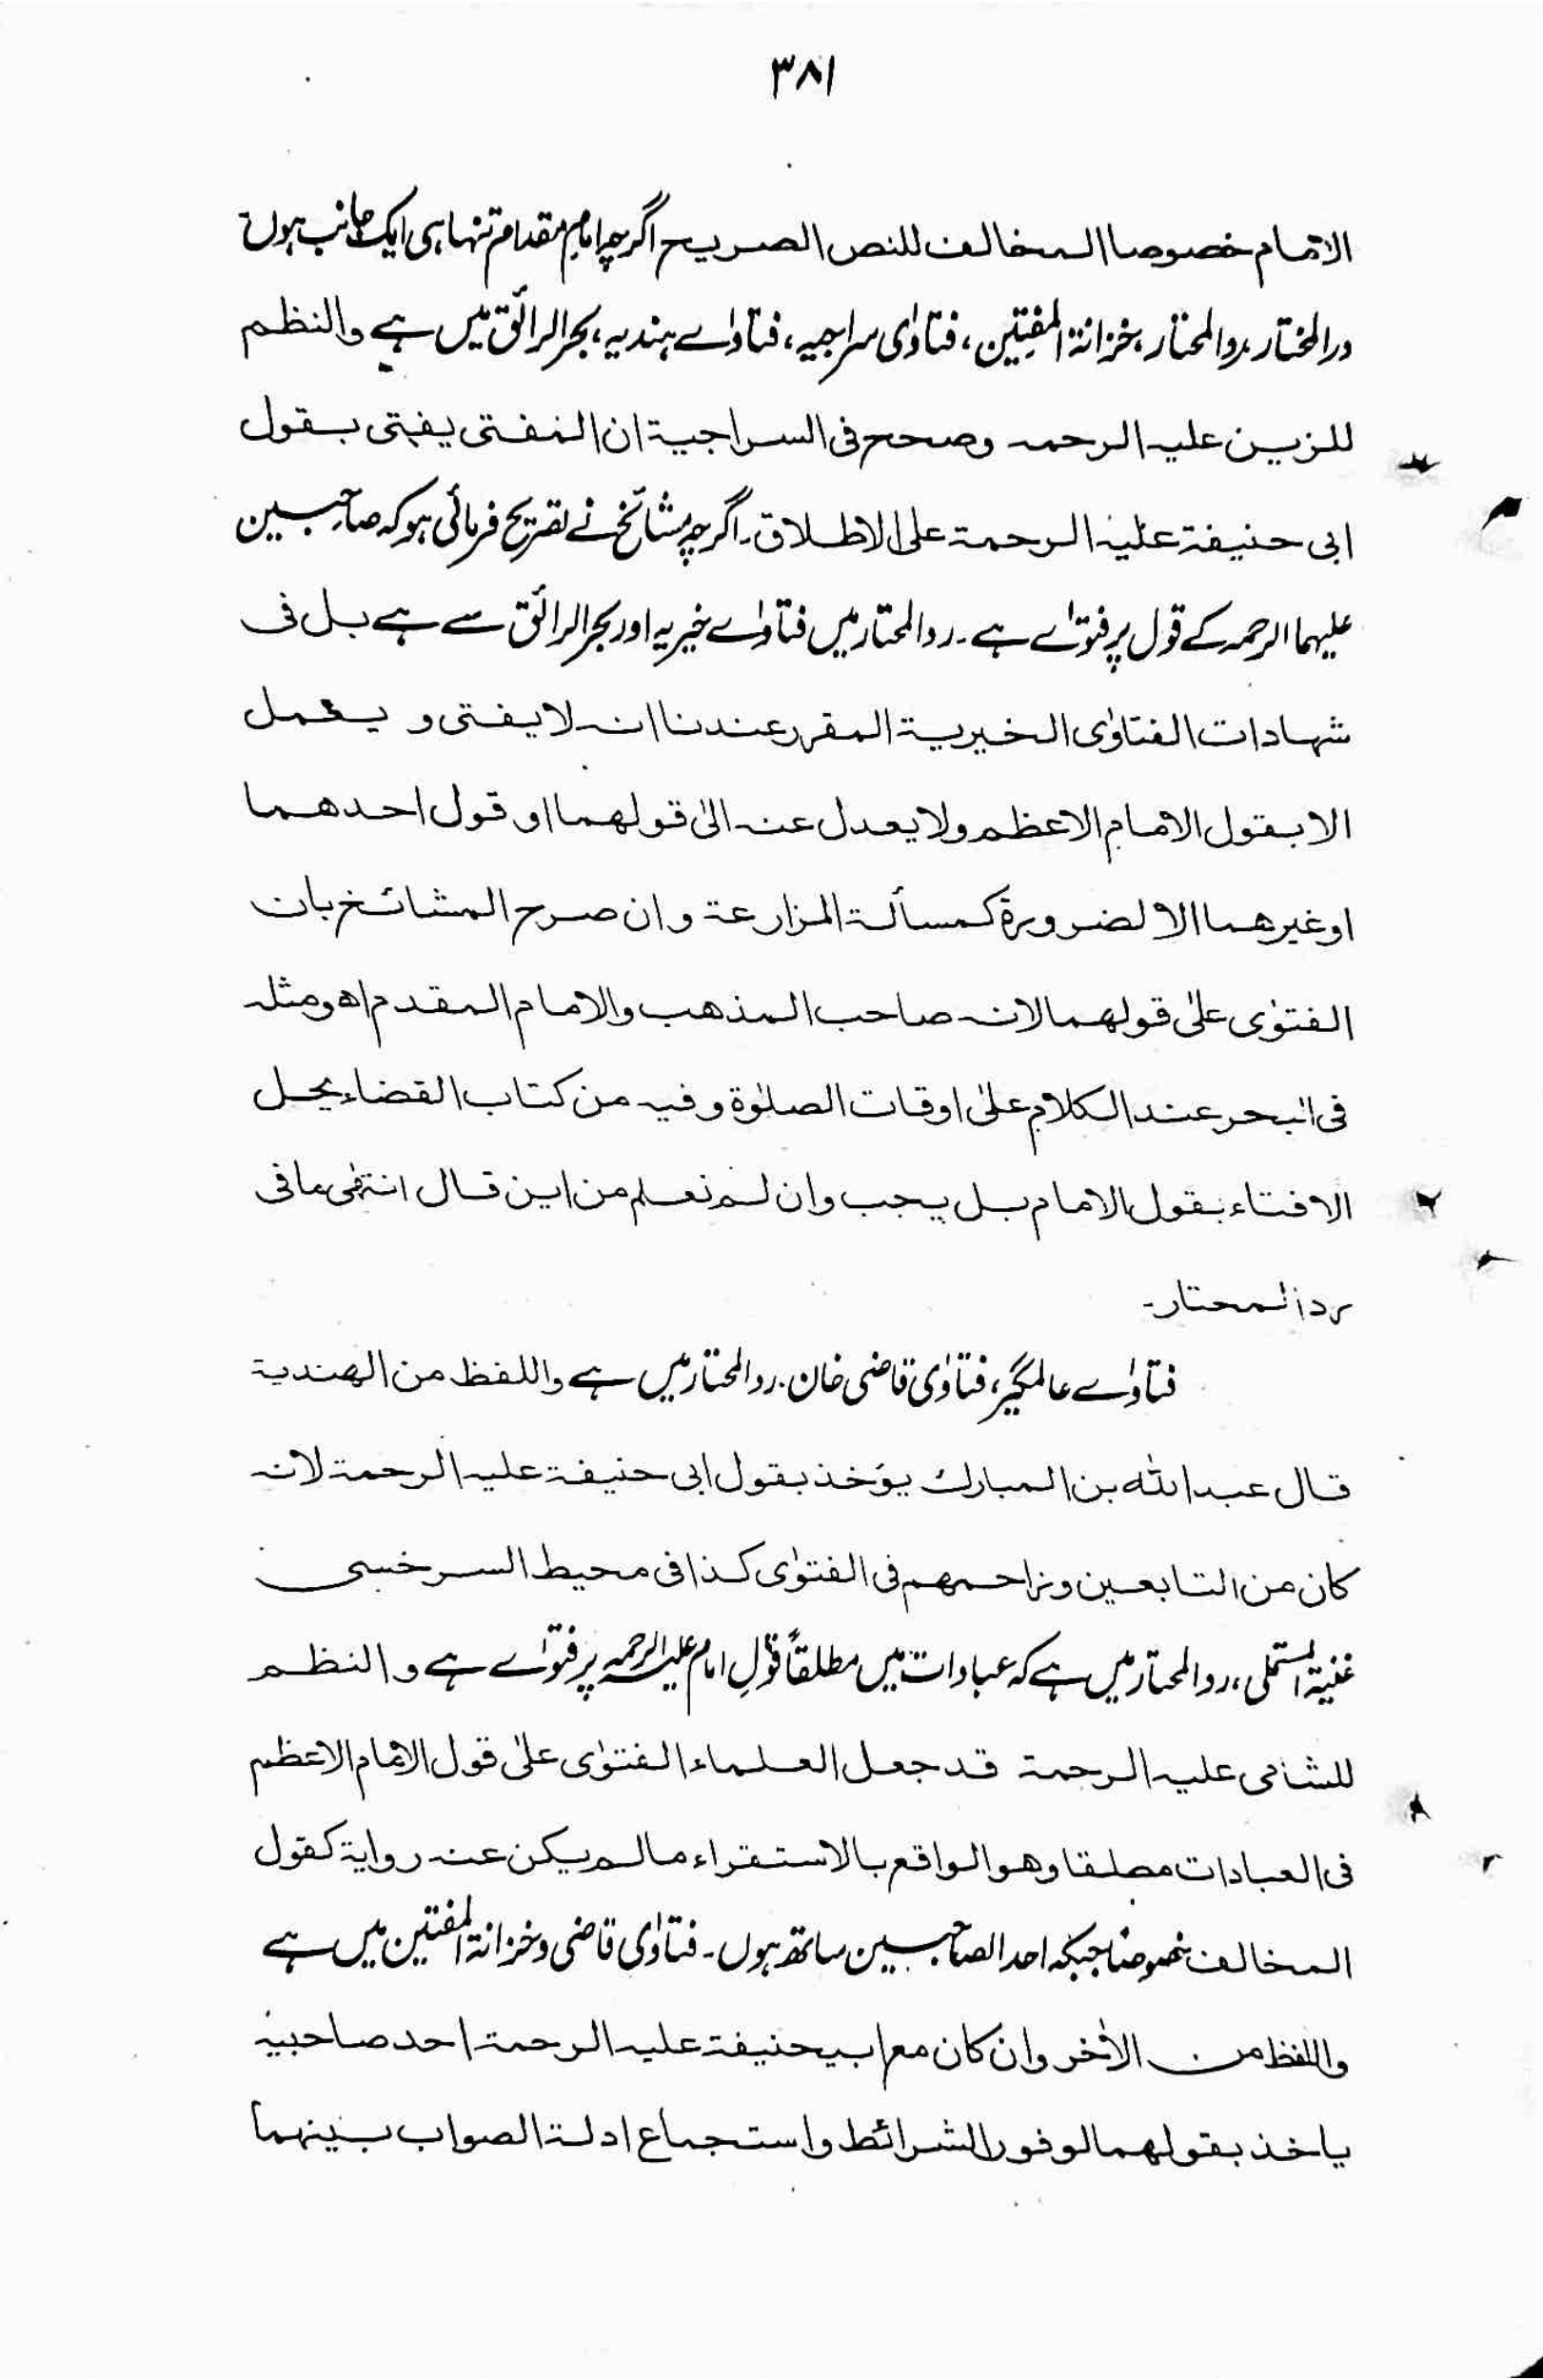 ۳۸۱
الامام خصوصا المخالف للنص الصریح اگرچہ امامِ مقدام تنہا ہی ایک جانب ہوں
درالمختار، ردالمحتار، خزانۃ المفتین، فتاوٰی سراجیہ، فتاوٰے ہندیہ، بحرالرائق میں ہے والنظم
للزین علیہ الرحمہ وصحح فی السراجیۃ ان المفتی یفتی بقول
ابی حنیفۃ علیہ الرحمۃ علی الاطلاق۔ اگرچہ مشائخ نے تصریح فرمائی ہو کہ صاحبین
علیہما الرحمہ کے قول پر فتوٰے ہے۔ ردالمحتار میں فتاوٰے خیریہ اور بحرالرائق سے ہے بل فی
شہادات الفتاوٰی الخیریۃ المقرر عندنا انہ لا یفتی و یعمل
الا بقول الامام الاعظم ولا یعدل عنہ الیٰ قولھما او قول احدھما
او غیرھما الا لضرورۃ کمسألۃ المزارعۃ وان صرح المشائخ بان
الفتوٰی علیٰ قولھما لانہ صاحب المذھب والامام المقدم اھ ومثلہ
فی البحر عند الکلام علیٰ اوقات الصلوٰۃ وفیہ من کتاب القضاء یحل
الافتاء بقول الامام بل یجب وان لم نعلم من این قال انتھٰی ما فی
ردالمحتار۔
فتاوٰے عالمگیر، فتاوٰی قاضی خان۔ ردالمحتار میں ہے واللفظ من الھندیۃ
قال عبداللہ بن المبارک یؤخذ بقول ابی حنیفۃ علیہ الرحمۃ لانہ
کان من التابعین وزاحمھم فی الفتوٰی کذا فی محیط السرخسی
غنیۃ المستملی، ردالمحتار میں ہے کہ عبادات میں مطلقاً قولِ امام علیہ الرحمہ پر فتوٰے ہے والنظم
للشامی علیہ الرحمۃ قد جعل العلماء الفتوٰی علیٰ قول الامام الاعظم
فی العبادات مطلقا وھو الواقع بالاستقراء مالم یکن عنہ روایۃ کقول
المخالف خصوصًا جبکہ احد الصاحبین ساتھ ہوں۔ فتاوٰی قاضی و خزانۃ المفتین میں ہے
واللفظ من الاٰخر وان کان مع ابیحنیفۃ علیہ الرحمۃ احد صاحبیہ
یاخذ بقولھما لوفور الشرائط واستجماع ادلۃ الصواب بینہما